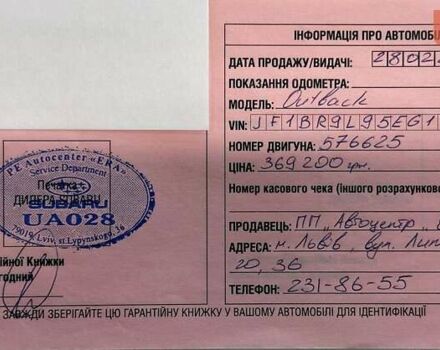 ІНФОРМАЦІЯ ПРО АВТОМОБІЛ
ДАТА ПРОДАЖУ/ВИДАЧІ: 2802
ПОКАЗАННЯ ОДОМЕТРА:
МОДЕЛЬ: Outback
VIN: JF1BR9L95EG1
НОМЕР ДВИГУНА: 576625
ЦІНА: 369200 грн.
Номер касового чека (іншого розрахунково
ПРОДАВЕЦЬ: ПП „Автоцентр „
АДРЕСА: м. Львів, вул. Лип
20, 36
ТЕЛЕФОН: 231-86-55
PE Autocenter «ERA»
Service Department
Печатка
ДИЛЕРА SUBARU
SUBARU
UA028
79019, Lviv, st.Lypynskogo, 36
ійної Книжки
годний
ЗАВЖДИ ЗБЕРІГАЙТЕ ЦЮ ГАРАНТІЙНУ КНИЖКУ У ВАШОМУ АВТОМОБІЛІ ДЛЯ ІДЕНТИФІКАЦІЇ